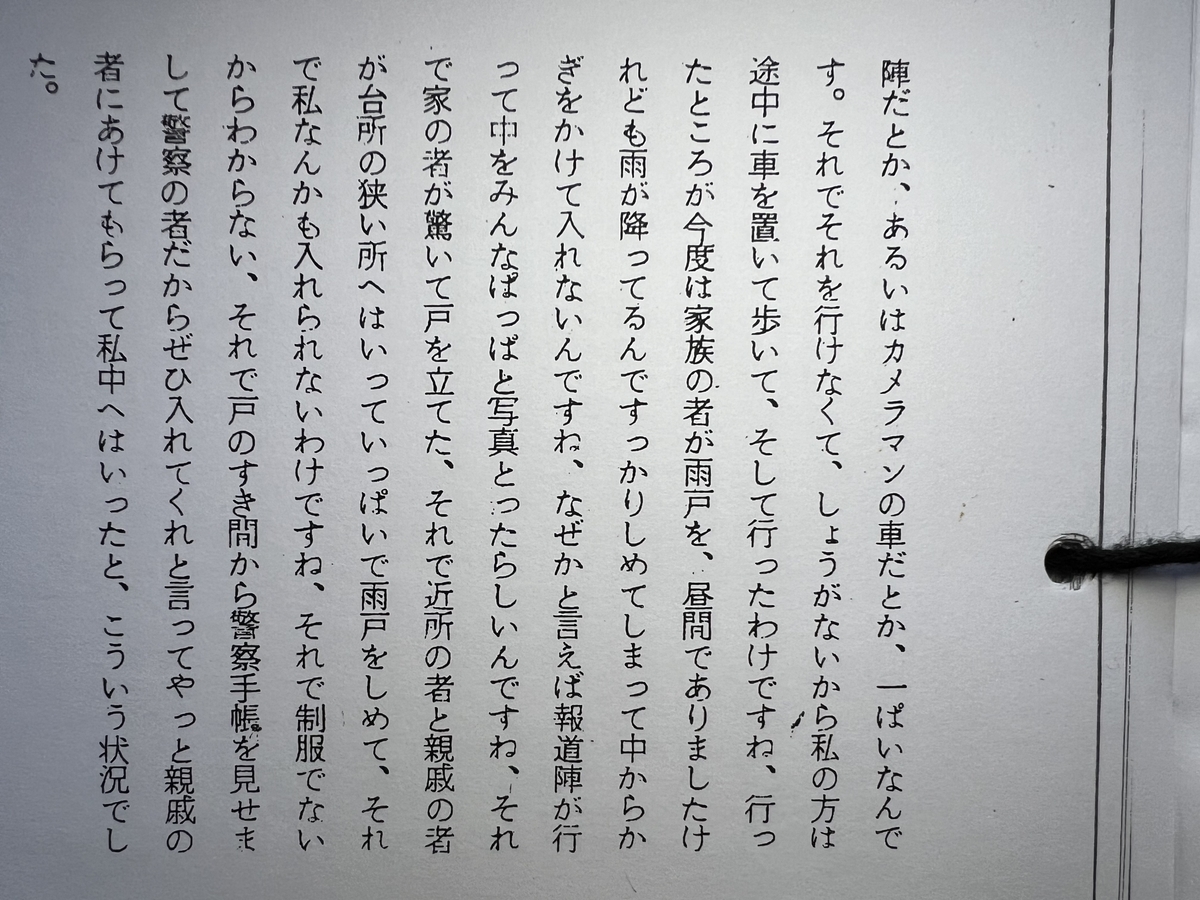 陣だとか、あるいはカメラマンの車だとか、一ぱいなんで
す。それでそれを行けなくて、しょうがないから私の方は
途中に車を置いて歩いて、そして行ったわけですね、行っ
たところが今度は家族の者が雨戸を、昼間でありましたけ
れども雨が降ってるんですっかりしめてしまって中からか
ぎをかけて入れないんですね、なぜかと言えば報道陣が行
って中をみんなぱっぱと写真とったらしいんですね、それ
で家の者が驚いて戸を立てた、それで近所の者と親戚の者
が台所の狭い所へはいっていっぱいで雨戸をしめて、それ
で私なんかも入れられないわけですね、それで制服でない
からわからない、それで戸のすき間から警察手帳を見せま
して警察の者だからぜひ入れてくれと言ってやっと親戚の
者にあけてもらって私中へはいったと、こういう状況でし
た。